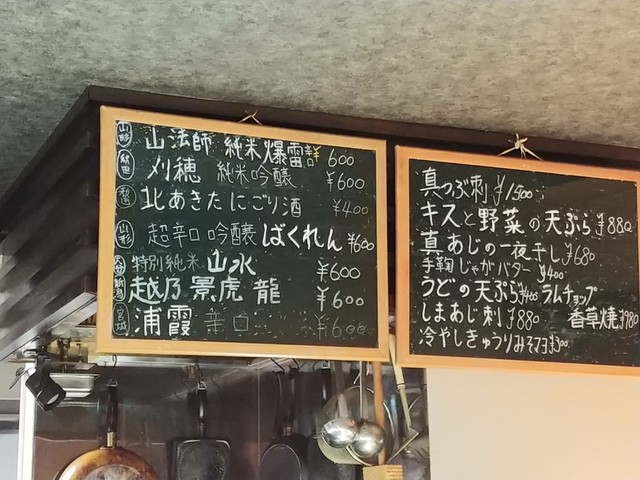 山形 山法師 純米爆雷 ¥600
秋田 刈穂 純米吟醸 ¥600
秋田 北あきた にごり酒 ¥400
山形 超辛口 吟醸 ばくれん ¥600
大分 特別純米 山水 ¥600
新潟 越乃景虎 龍 ¥600
宮城 浦霞 辛口 ¥600
真つぶ刺 ¥1500
キスと野菜の天ぷら ¥880
真あじの一夜干し ¥680
手鞠じゃがバター ¥400
うどの天ぷら ¥400 ラムチョップ
しまあじ刺 ¥880 香草焼 ¥980
冷やしきゅうりみそマヨ ¥300